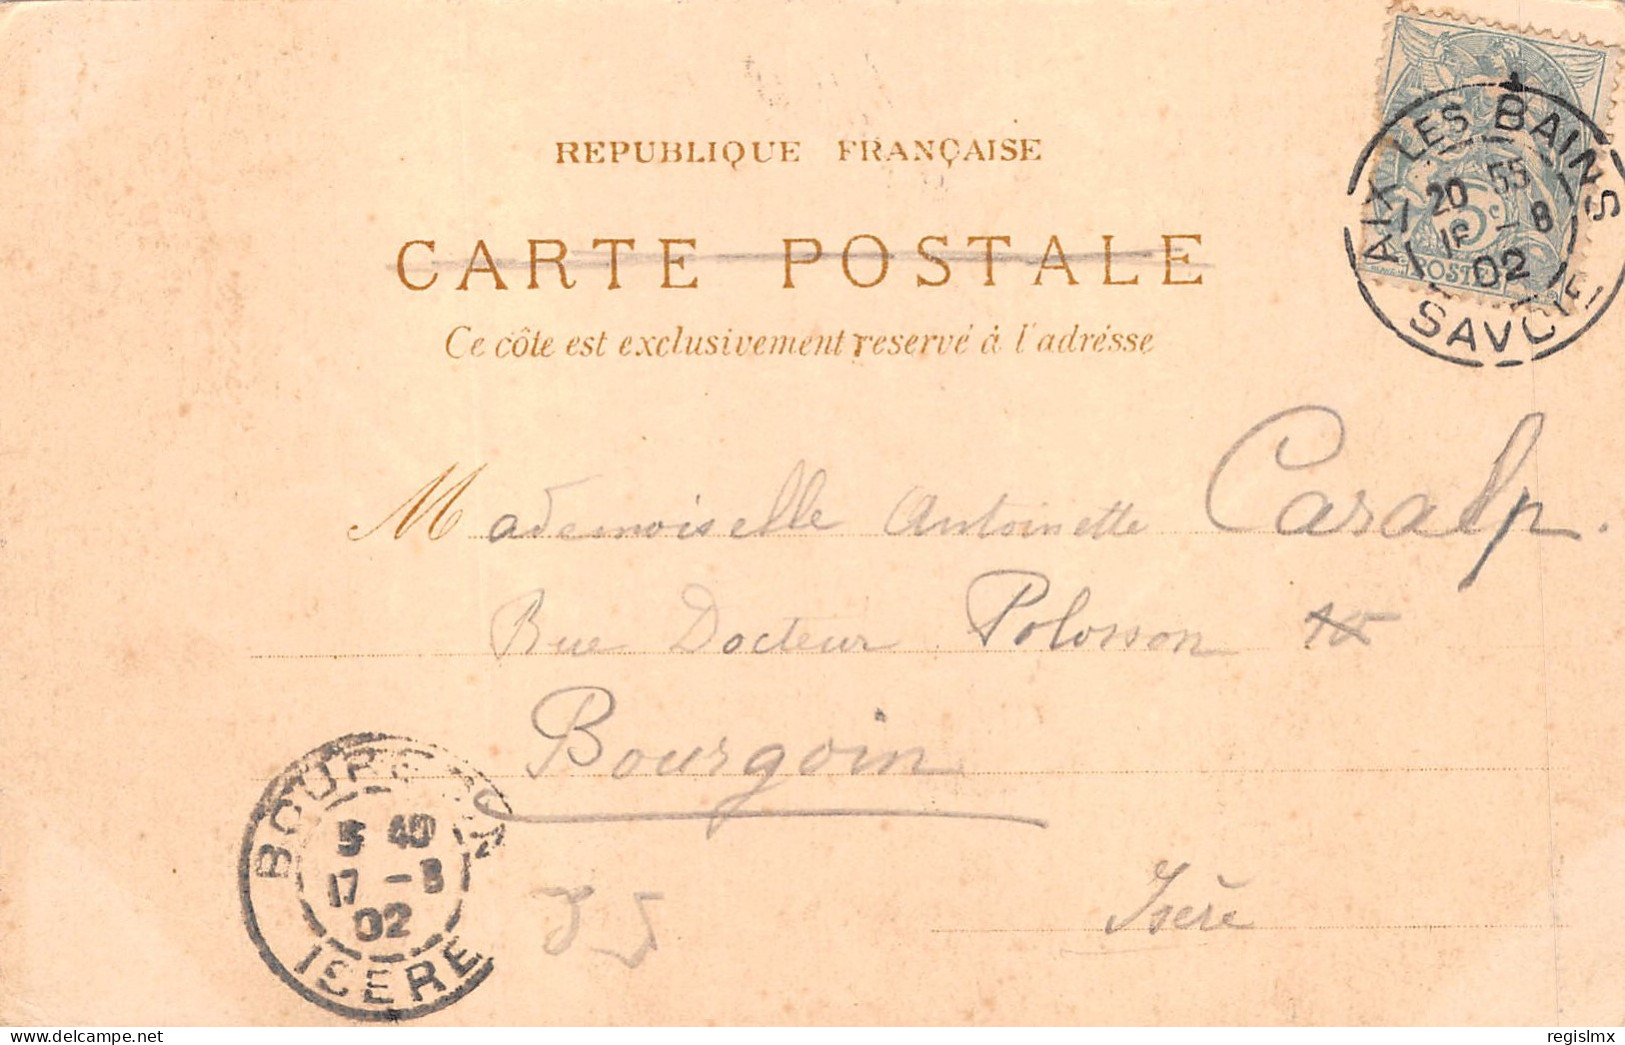 REPUBLIQUE FRANÇAISE
CARTE POSTALE
Ce côte est exclusivement reservé à l'adrésse
AIX LES BAINS
20 55
16 - 8
02
SAVOIE
5c
POSTES
Mademoiselle Antoinette Caralp.
Rue Docteur Polosson
Bourgoin
Isère
BOURGOIN
5 40
17 - 8
02
ISERE
delcampe.net
regislmx